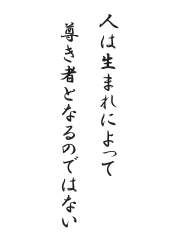 人は生まれによって
尊き者となるのではない